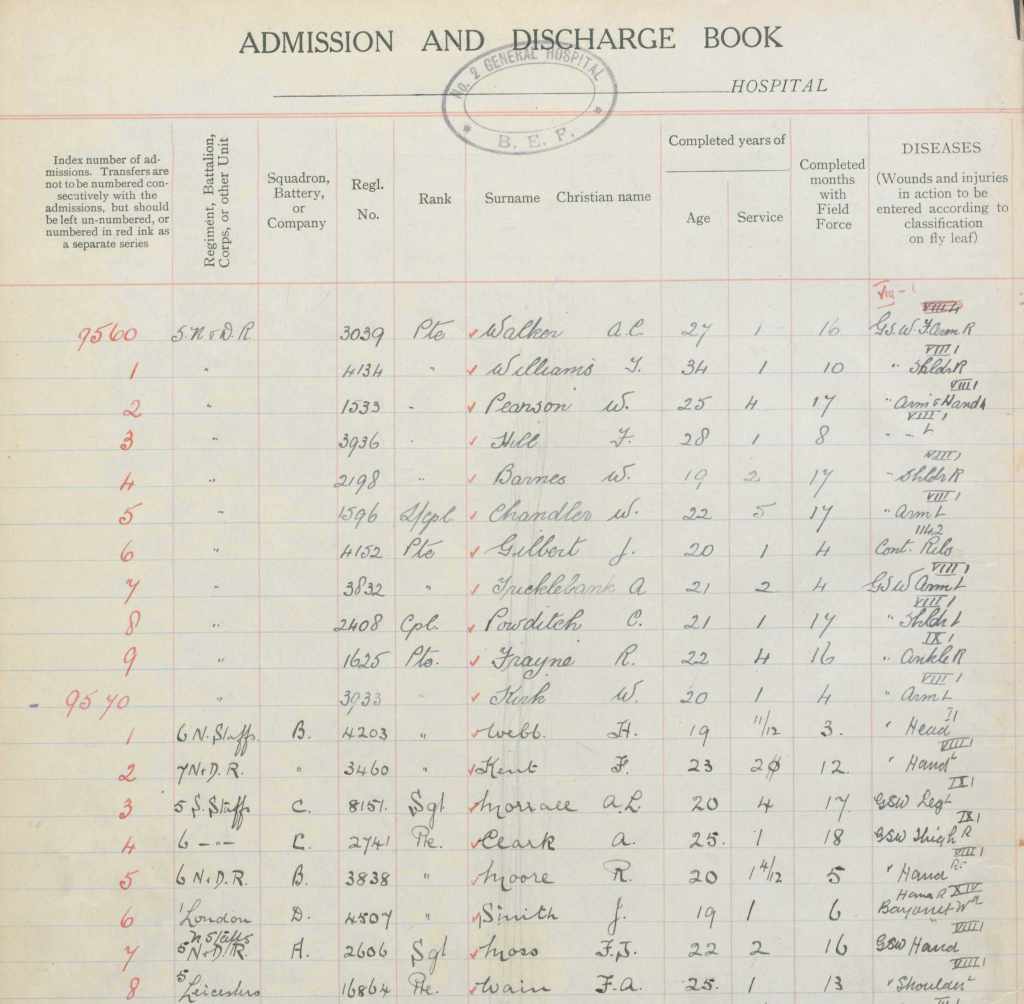 ADMISSION AND DISCHARGE BOOK
No. 2 GENERAL HOSPITAL
B. E. F.
HOSPITAL
Index number of admissions. Transfers are not to be numbered consecutively with the admissions, but should be left un-numbered, or numbered in red ink as a separate series
Regiment, Battalion, Corps, or other Unit
Squadron, Battery, or Company
Regl. No.
Rank
Surname Christian name
Completed years of
Age
Service
Completed months with Field Force
DISEASES
(Wounds and injuries in action to be entered according to classification on fly leaf)
VIII - 1
9560 5 N & D. R 3039 Pte Walker A.C. 27 1 16 G.S.W. F.Arm R
VIII 1
1 " 4134 " Williams T. 34 1 10 " Shldr R
VIII 1
2 " 1533 " Pearson W. 25 4 17 " Arm & Hand
VIII 1
3 " 3936 " Hill F. 28 1 8 " - L
VIII 1
4 " 2198 " Barnes W. 19 2 17 " Shldr R
VIII 1
5 " 1596 L/cpl Chandler W. 22 5 17 " Arm L
6 " 4152 Pte Gilbert J. 20 1 4 Cont.
VIII 1
7 " 3832 " Tricklebank A 21 2 4 G.S.W Arm L
VIII 1
8 " 2408 Cpl. Powditch C. 21 1 17 " Shldr L
IX 1
9 " 1625 Pte. Frayne R. 22 4 16 " Ankle R
VIII 1
9570 " 3933 " Kirk W. 20 1 4 " Arm L
I 1
1 6 N. Staffs B. 4203 " Webb. H. 19 11/12 3. " Head
VIII 1
2 7 N & D. R. 3460 " Kent F. 23 20 12. " Hand L
IX 1
3 5 S. Staffs C. 8151. Sgt A.L. 20 4 17. GSW Leg L
IX 1
4 6 -"- C. 2741 Pte. Clark A. 25. 1 18 GSW Thigh R
VIII 1
5 6 N & D. R. B. 3838 " Moore R. 20 1 4/12 5 " Hand Rt
Hand R XIV
6 1 London D. 4507 " Smith J. 19 1 6 Bayonet W
N Staffs VIII 1
7 5 N & D. R. A. 2606 Sgt Moss F.J. 22 2 16 GSW Hand
VIII 1
8 5 Leicesters 16864 Pte. Wain F.A. 25. 1 13 " Shoulder L